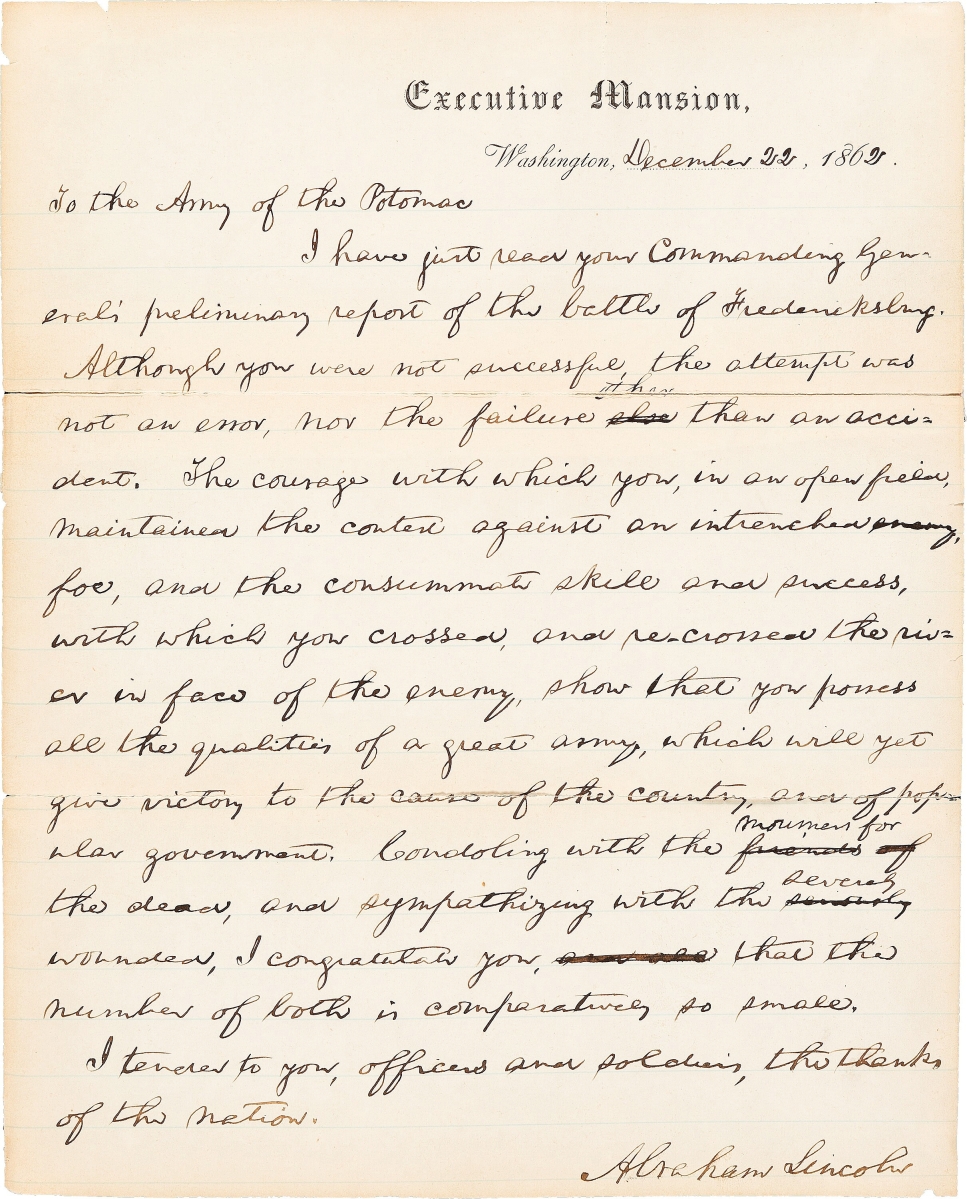 Executive Mansion,
Washington, December 22, 1862.
To the Army of the Potomac
I have just read your Commanding Gen-
eral's preliminary report of the battle of Fredericksburg.
Although you were not successful, the attempt was
other
not an error, nor the failure else than an acci=
dent. The courage with which you, in an open field,
maintained the contest against an intrenched enemy,
foe, and the consummate skill and success,
with which you crossed, and re-crossed the riv=
er in face of the enemy, show that you possess
all the qualities of a great army, which will yet
give victory to the cause of the country, and of popu=
mourners for
lar government. Condoling with the friends of
severely
the dead, and sympathizing with the seriously
wounded, I congratulate you, and all that the
number of both is comparatively so small.
I tender to you, officers and soldiers, the thanks
of the nation.
Abraham Lincoln